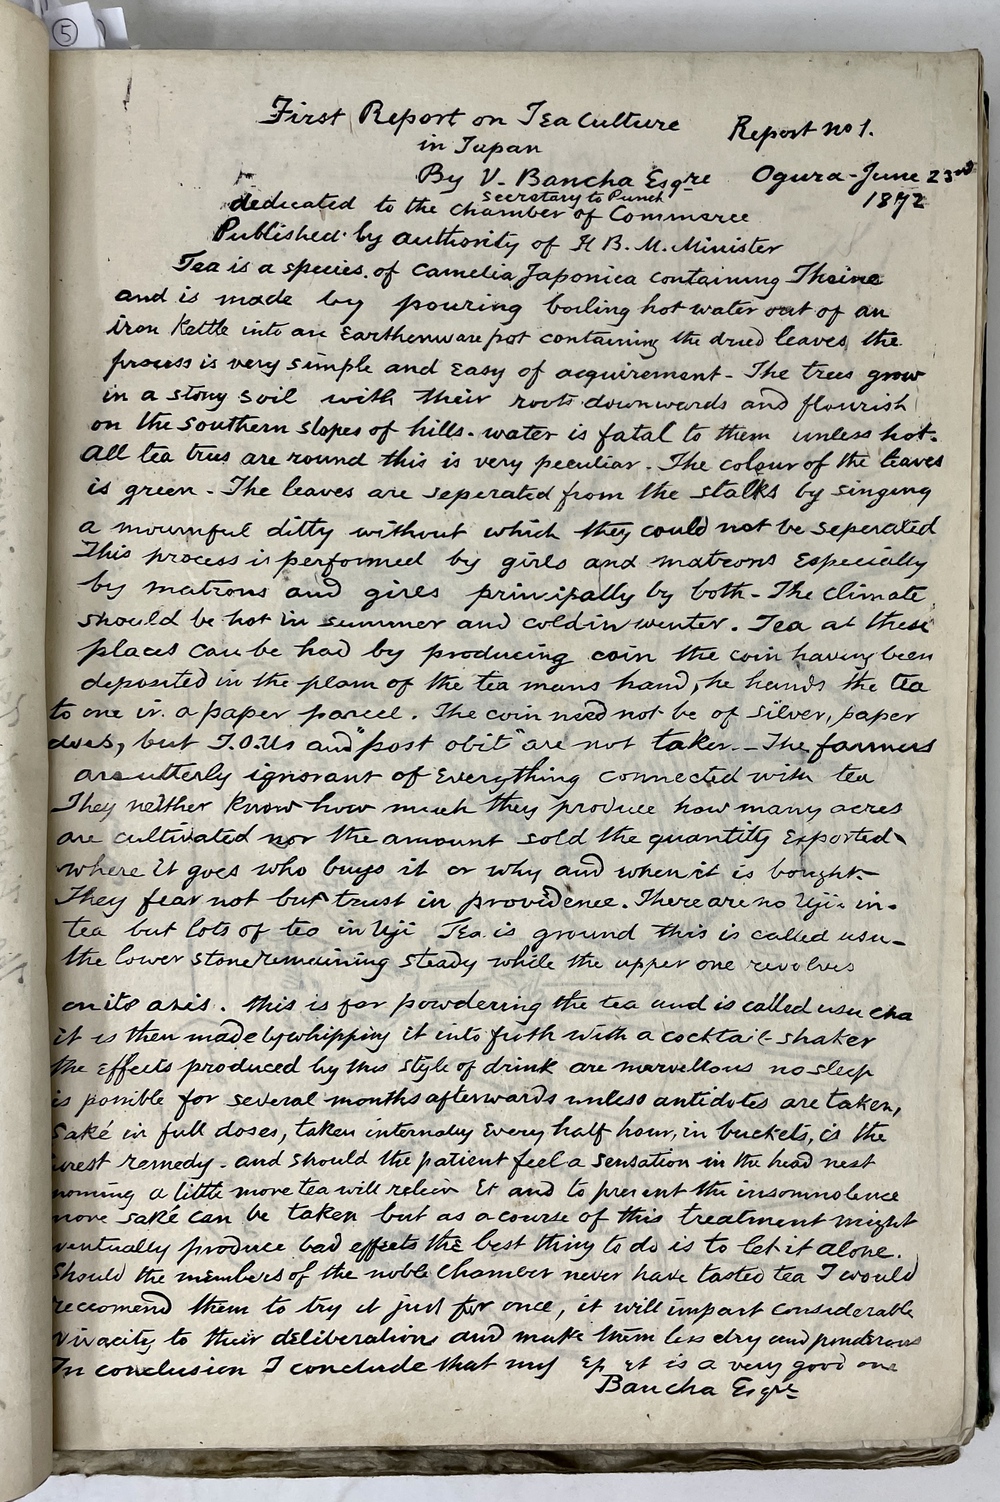 5
First Report on Tea Culture
Report no 1.
in Japan
By V. Bancha Esqre
Ogura - June 23rd
1872
Secretary to Punch
dedicated to the Chamber of Commerce
Published by authority of H B. M. Minister
Tea is a species of Camelia Japonica containing Theine
and is made by pouring boiling hot water out of an
iron kettle into an Earthenware pot containing the dried leaves, the
process is very simple and Easy of acquirement - The trees grow
in a stony soil with their roots downwards and flourish
on the Southern slopes of hills. water is fatal to them unless hot.
All tea trees are round this is very peculiar. The colour of the leaves
is green - The leaves are seperated from the stalks by singing
a mournful ditty without which they could not be seperated
This process is performed by girls and matrons Especially
by matrons and girls principally by both - The climate
should be hot in summer and cold in winter. Tea at these
places can be had by producing coin the coin having been
deposited in the plam of the tea mans hand, he hands the tea
to one in a paper parcel. The coin need not be of silver, paper
does, but I.O.Us and "post obit" are not taken. - The farmers
are utterly ignorant of Everything connected with tea
They neither know how much they produce how many acres
are cultivated nor the amount sold the quantity Exported -
where it goes who buys it or why and when it is bought -
They fear not but trust in providence. There are no Uji - in -
tea but lots of tea in Uji Tea is ground this is called usu -
the lower stone remaining steady while the upper one revolves
on its axis. this is for powdering the tea and is called usu cha
it is then made by whipping it into froth with a cocktail-shaker
the Effects produced by this style of drink are marvellous no sleep
is possible for several months afterwards unless antidotes are taken,
Saké in full doses, taken internally Every half hour, in buckets, is the
surest remedy - and should the patient feel a sensation in the head next
morning a little more tea will releive it and to prevent the insomnolence
more saké can be taken but as a course of this treatment might
eventually produce bad effects the best thing to do is to let it alone.
Should the members of the noble Chamber never have tasted tea I would
reccomend them to try it just for once, it will impart considerable
vivacity to their deliberations and make them less dry and ponderous
In conclusion I conclude that my Ep et is a very good one
Bancha Esqre